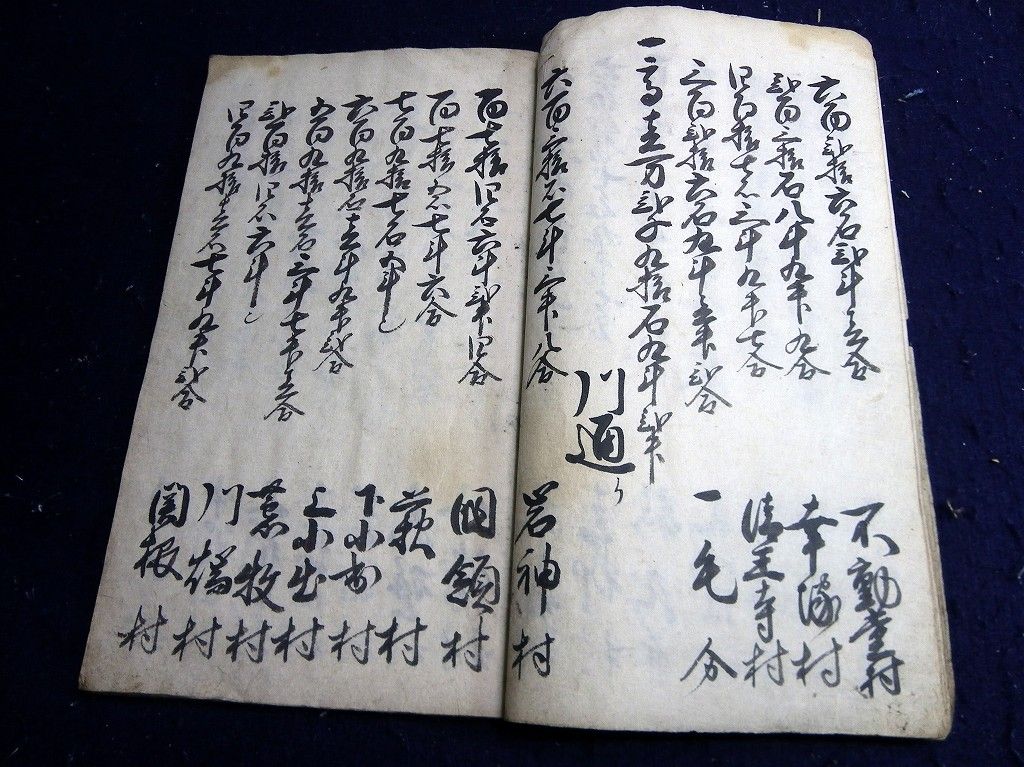 六百弐拾六石弐斗三合 不動堂村
弐百三拾石八斗九升九合 幸塚村
四百拾七石三斗九升七合 清王寺村
三百弐拾六石九斗三升弐合 一毛分
一高壱万弐千九拾石九斗弐升
川通り
六百三拾石七斗三升八合 岩神村
百七拾四石六斗弐升四合 国領村
百七拾五石七斗六合 萩村
七百九拾七石五斗也 下小出村
六百九拾石壱斗九升弐合 上小出村
五百九拾壱石三斗七升三合 荒牧村
弐百拾四石六斗也 川端村
四百九拾壱石七斗九升弐合 関根村